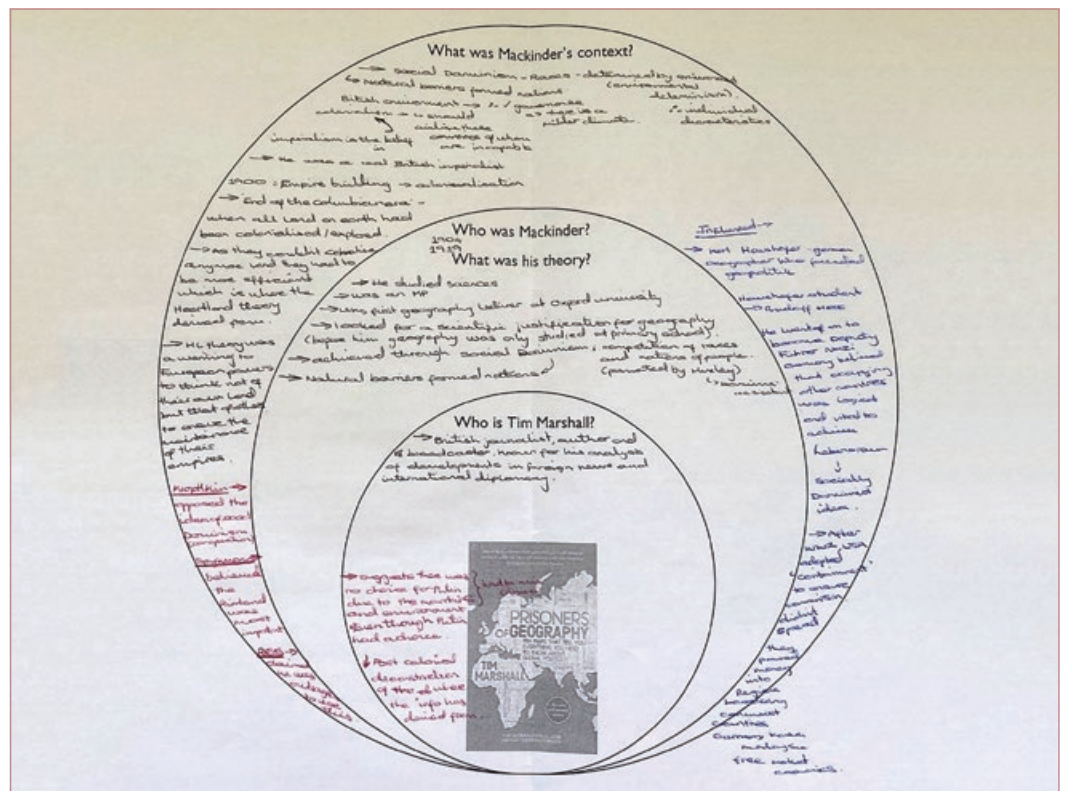 What was Mackinder's context?
→ Social Darwinism - Races - determined by environment
(environmental
determinism).
↳ Natural barriers formed nations
British environment → governance
→ there is a
milder climate.
∴ individual
characteristics
colonialism → should
civilise these
countries of whom
are incapable
imperialism is the belief
in
→ He was a real British imperialist
1900 : Empire building → colonialisation
→ 'End of the Columbian era' -
when all land on earth had
been colonialised / explored.
→ As they couldn't colonise
anymore land they had to
be more efficient
which is where the
Heartland theory
derived from.
→ His theory was
a warning to
European powers
to think not of
their own land
but that of others
to ensure the
maintenance
of their
empires.
Kropotkin →
opposed the
idea of social
Darwinism
competition
believed
the
rimland
was
most
important
→
claimed
he was
Who was Mackinder?
1904
1919
What was his theory?
→ He studied sciences
→ was an MP
→ Was first geography lecturer at Oxford university
→ Looked for a scientific justification for geography
(before him geography was only studied at primary school).
→ achieved through social Darwinism; competition of races
and nations of people.
(promoted by Huxley)
→ Natural barriers formed nations
Who is Tim Marshall?
→ British journalist, author and
broadcaster, known for his analysis
of developments in foreign news and
international diplomacy.
→ suggests there was
no choice for Putin
due to the
and environment
even though Putin
had a choice.
↓ Post colonial
deconstruction
of the of where
the info has
derived from.
PRISONERS
OF GEOGRAPHY
TEN MAPS THAT TELL YOU
EVERYTHING YOU NEED
TO KNOW ABOUT
GLOBAL POLITICS
TIM
MARSHALL
Influenced →
→ Karl Haushofer - german
geographer who founded
geopolitik
Haushofer student
→ Rudolf Hess
He went on to
become Deputy
Führer Nazi
Germany believed
that occupying
other countries
was logical
and vital to
achieve
Lebensraum
↓
Socially
Darwinist
idea.
→ After
WWII, USA
adopted
'containment'
to ensure
communism
didn't
spread
they
poured
money
into
Regions
bordering
communist
countries
Germany Korea
Malaysia
free market
economies.